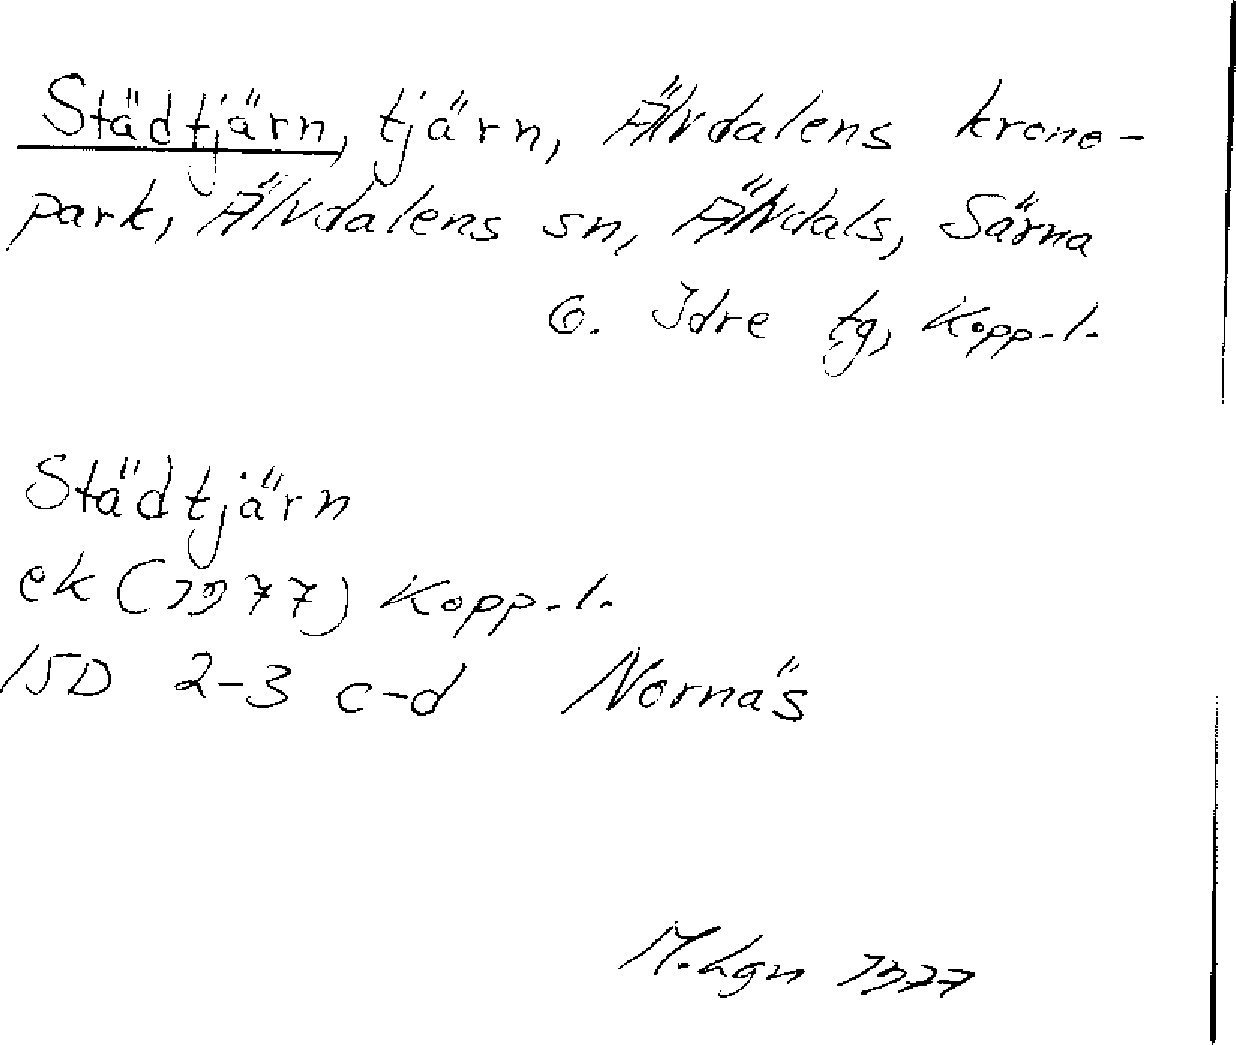 Städtjärn, tjärn, Älvdalens krono-
park, Älvdalens sn, Älvdals, Särna
o. Idre tg, Kopp.l.
Städtjärn
ek (1977) Kopp.l.
15D 2-3 c-d Nornäs
M.Lgn 1977